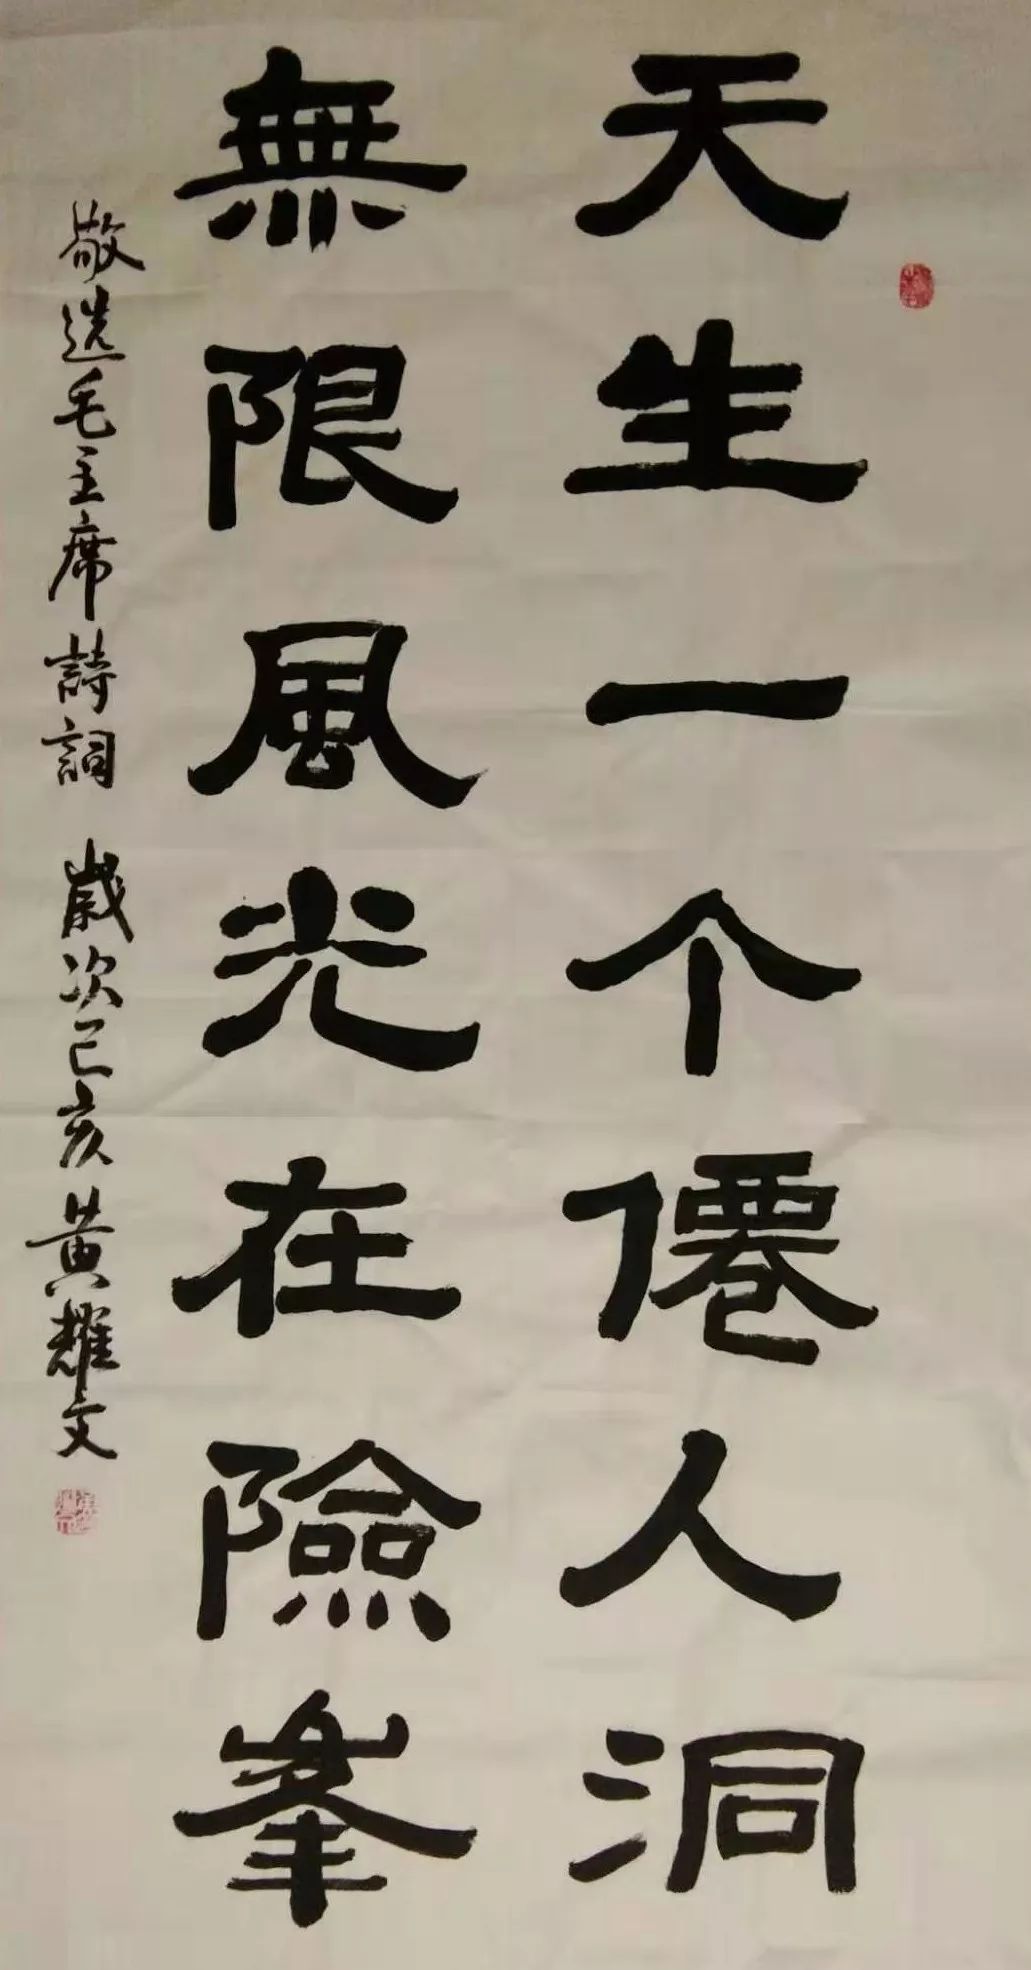 天生一个僊人洞
無限風光在險峯
敬选毛主席詩詞 歲次己亥黄耀文